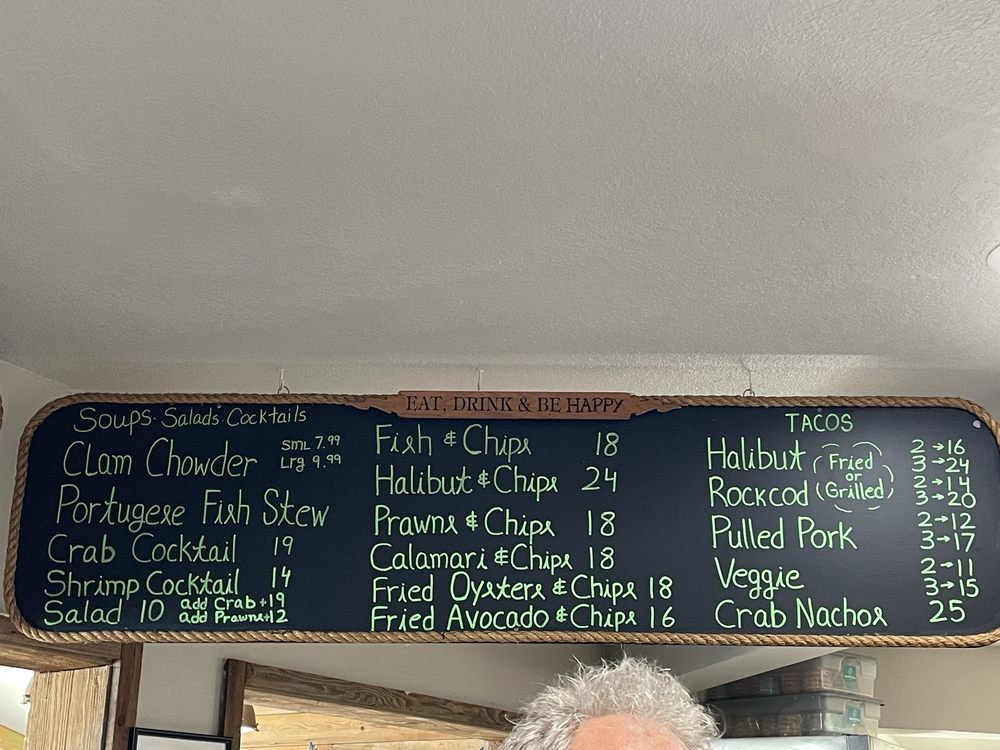 EAT, DRINK & BE HAPPY
Soups · Salads · Cocktails
Clam Chowder Sml 7.99
Lrg 9.99
Portugese Fish Stew
Crab Cocktail 19
Shrimp Cocktail 14
Salad 10 add Crab +19
add Prawns +12
Fish & Chips 18
Halibut & Chips 24
Prawns & Chips 18
Calamari & Chips 18
Fried Oysters & Chips 18
Fried Avocado & Chips 16
TACOS
Halibut (Fried or Grilled) 2→16
3→24
Rockcod 2→14
3→20
Pulled Pork 2→12
3→17
Veggie 2→11
3→15
Crab Nachos 25